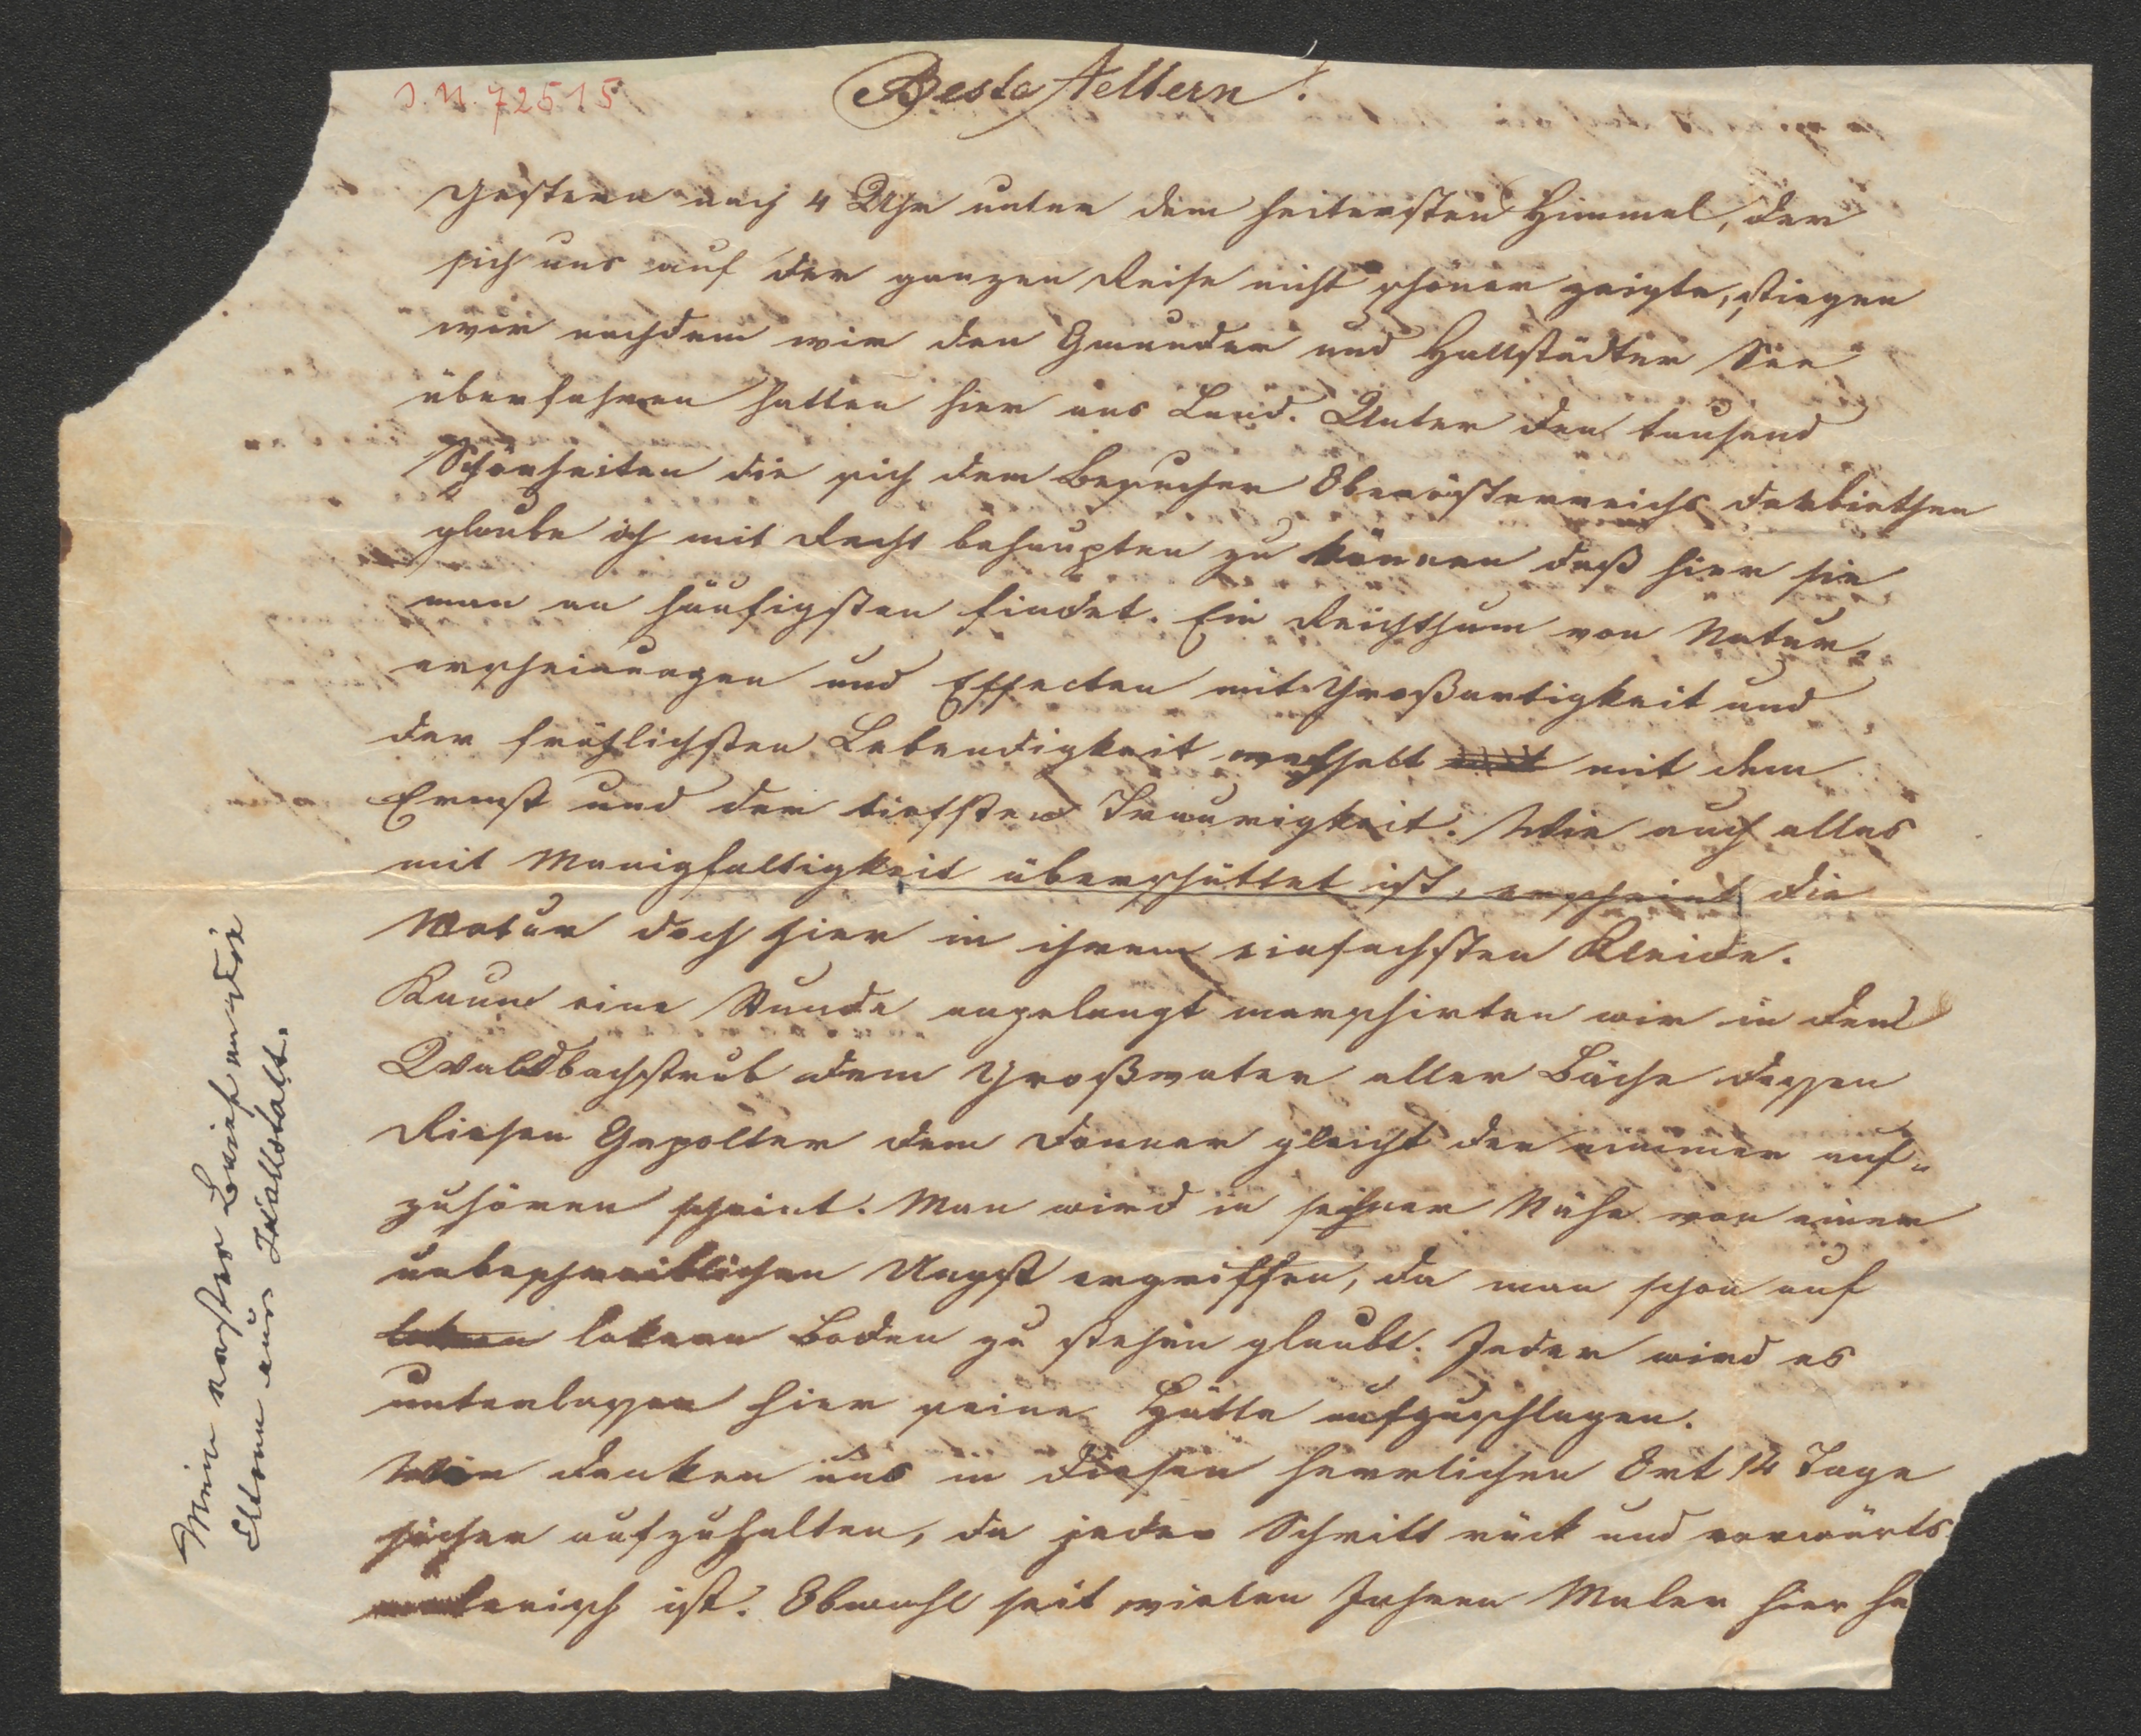 J.N. 72515
Beste Aeltern!
Gestern nach 4 Uhr unter dem heitersten Himmel, der
sich uns auf der ganzen Reise nicht schöner zeigte, stiegen
wir nachdem wir den Gmunder und Hallstädter See
überfahren hatten hier ans Land. Unter den tausend
Schönheiten die sich dem Besucher Oberösterreichs darbiethen
glaube ich mit Recht behaupten zu können daß hier sie
man am häufigsten findet. Ein Reichthum von Natur-
erscheinungen und Effecten mit Großartigkeit und
der fröhlichsten Lebendigkeit wechselt mit dem
Ernst und der tiefsten Traurigkeit. Wie auch alles
mit Manigfaltigkeit überschüttet ist, erscheint die
Natur doch hier in ihrem einfachsten Kleide.
Kaum eine Stunde angelangt marschirten wir in den
Waldbachstrub dem Großvater aller Bäche dessen
Riesen Gepolter dem Donner gleicht der nimmer auf-
zuhören scheint. Man wird in seiner Nähe von einer
unbeschreiblichen Angst ergriffen, da man schon auf
lokern Boden zu stehen glaubt. Jeder wird es
unterlassen hier seine Hütte aufzuschlagen.
Wir denken uns in diesen herrlichen Ort 14 Tage
sicher aufzuhalten, da jeder Schritt rück und vorwärts
malerisch ist. Obwohl seit vielen Jahren Maler hier ha
Mein erster Brief an die
Eltern aus Hallstatt.